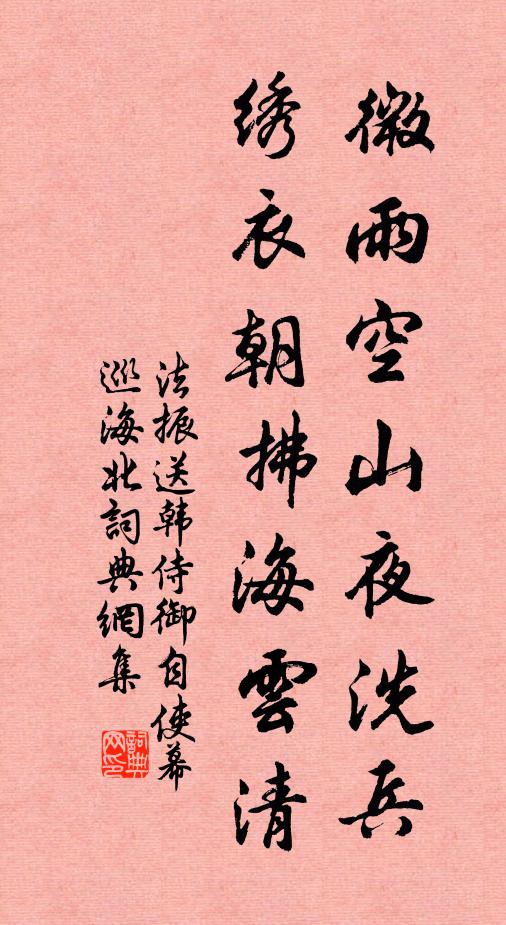 微雨空山夜洗兵
绣衣朝拂海雲清
法振送韩侍御自使幕
巡海北詞典網集
詞典網印